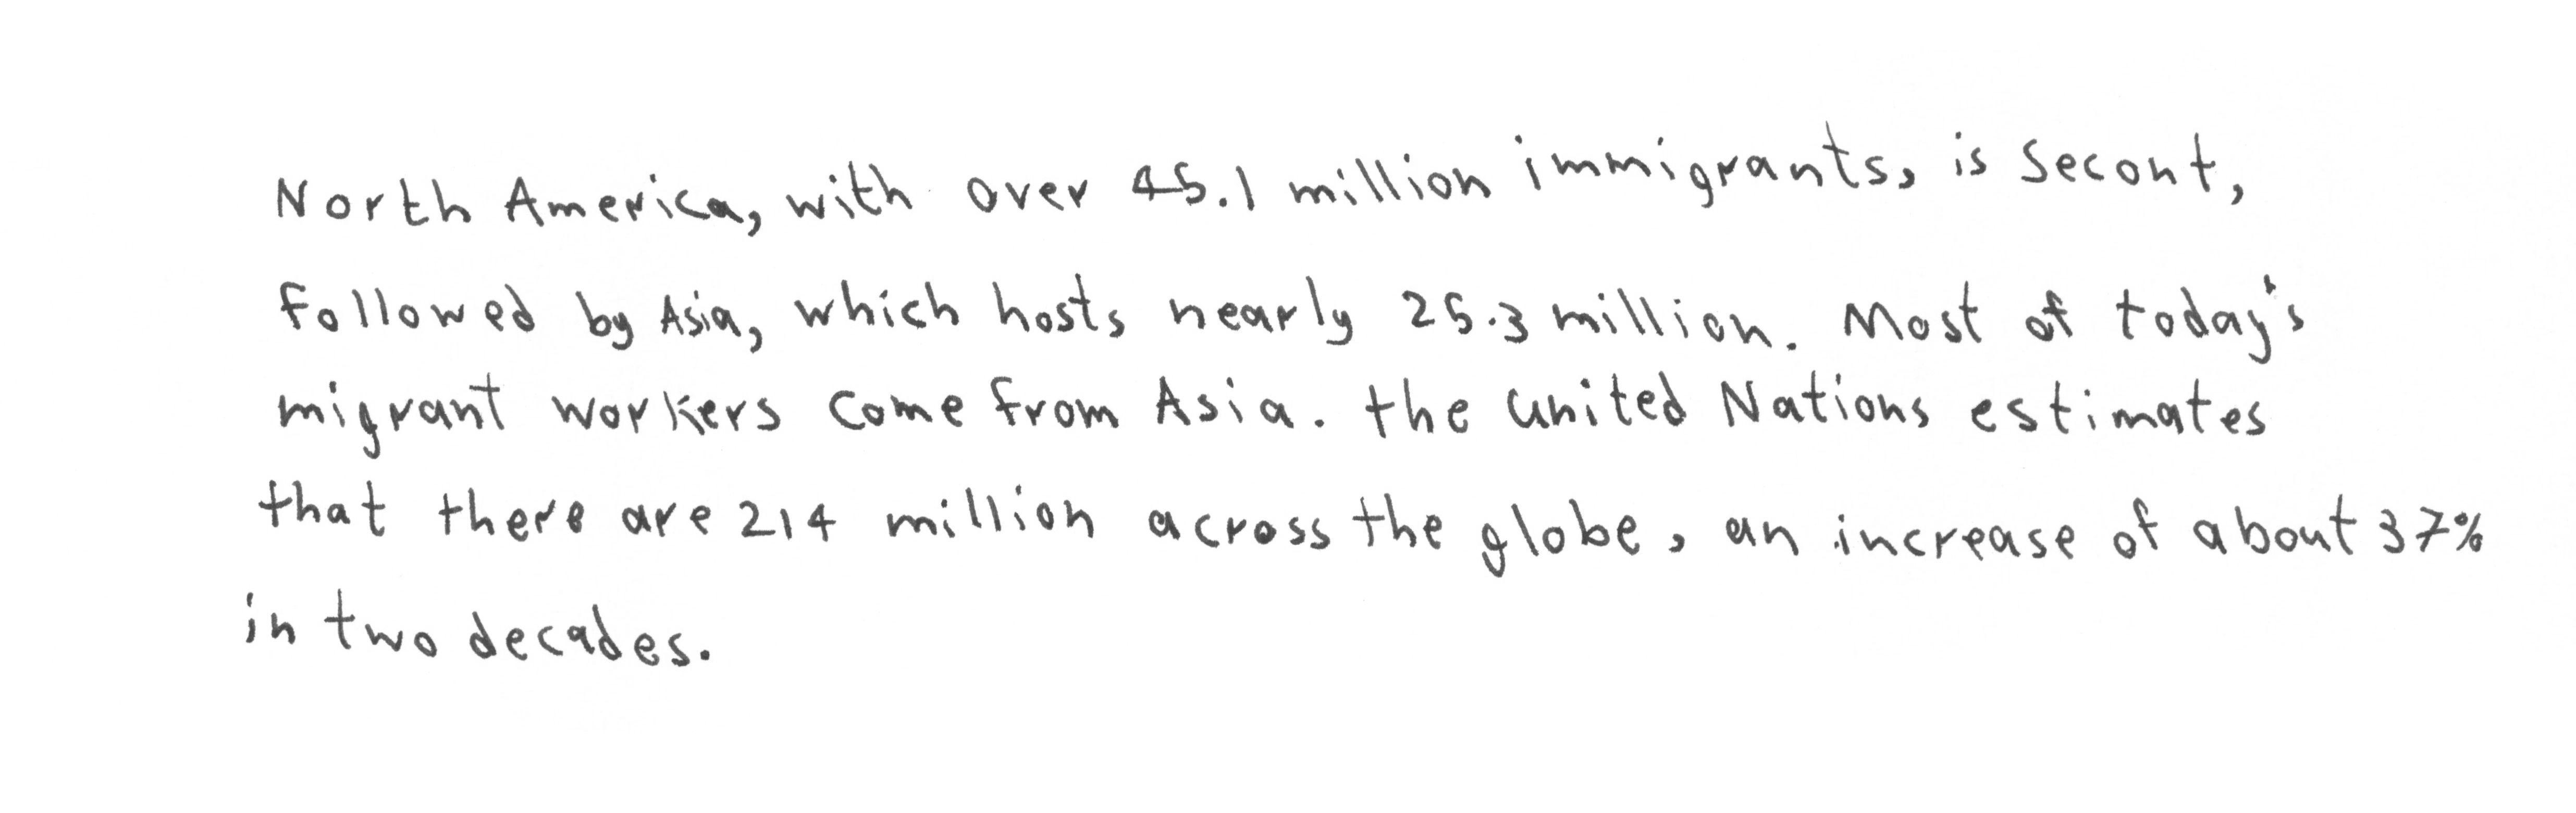 North America, with over 45.1 million immigrants, is secont,
followed by Asia, which hosts nearly 25.3 million. Most of today's
migrant workers come from Asia. the united Nations estimates
that there are 214 million across the globe, an increase of about 37%
in two decades.